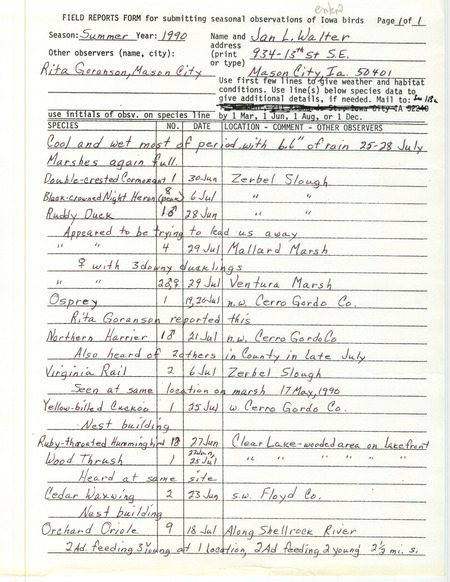 enter2
FIELD REPORTS FORM for submitting seasonal observations of Iowa birds Page 1 of 1
Season: Summer Year: 1990 Name and Jan L. Walter
address
Other observers (name, city): (print 934-13th St S.E.
or type)
Rita Goranson, Mason City Mason City, Ia. 50401
Use first few lines to give weather and habitat
conditions. Use line(s) below species data to
give additional details, if needed. Mail to:
Iowa City IA 52240
use initials of obsv. on species line by 1 Mar, 1 Jun, 1 Aug, or 1 Dec.
SPECIES NO. DATE LOCATION - COMMENT - OTHER OBSERVERS
Cool and wet most of period with 6.6" of rain 25-28 July
Marshes again full.
Double-crested Cormorant 1 30 Jun Zerbel Slough
Black-crowned Night Heron 8 (peak) 6 Jul " "
Ruddy Duck 1♂ 28 Jun " "
Appeared to be trying to lead us away
" " 4 29 Jul Mallard Marsh
♀ with 3 downy ducklings
" " 2♂♀ 29 Jul Ventura Marsh
Osprey 1 19,20 Jul n.w. Cerro Gordo Co.
Rita Goranson reported this
Northern Harrier 1♂ 21 Jul n.w. Cerro Gordo Co
Also heard of 2 others in County in late July
Virginia Rail 2 6 Jul Zerbel Slough
Seen at same location on marsh 17 May, 1990
Yellow-billed Cuckoo 1 25 Jul w. Cerro Gordo Co.
Nest building
Ruby-throated Hummingbird 1♂ 27 Jun Clear Lake-wooded area on lakefront
Wood Thrush 1 27 Jun, 25 Jul " " " " "
Heard at same site
Cedar Waxwing 2 23 Jun s.w. Floyd Co.
Nest building
Orchard Oriole 9 18 Jul Along Shellrock River
2 Ad. feeding 3 Young at 1 location, 2 Ad feeding 2 young 2½ mi. s.